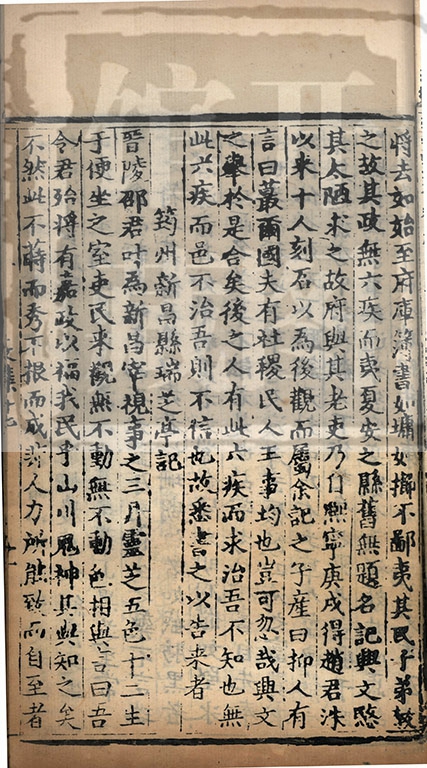 將去如始至府庫簿書如墉如櫛不鄙夷其民子弟教
之故其政無六疾而夷夏安之縣舊無題名記興文愍
其太陋求之故府與其老吏乃自熈寧庚戌得趙君洙
以來十人刻石以為後觀而屬余記之子産曰抑人有
言曰蕞爾國夫有社稷民人王事均也豈可忽哉興文
之舉於是合矣後之人有此六疾而求治吾不知也無
此六疾而邑不治吾則不信也故悉書之以告来者
筠州新昌縣瑞芝亭記
晉陵邵君叶為新昌宰視事之三月靈芝五色十二生
于便坐之室吏民來觀無不動無不動色相與言曰吾
令君殆將有嘉政以福我民乎山川鬼神其與知之矣
不然此不蒔而秀不根而成非人力所能致而自至者